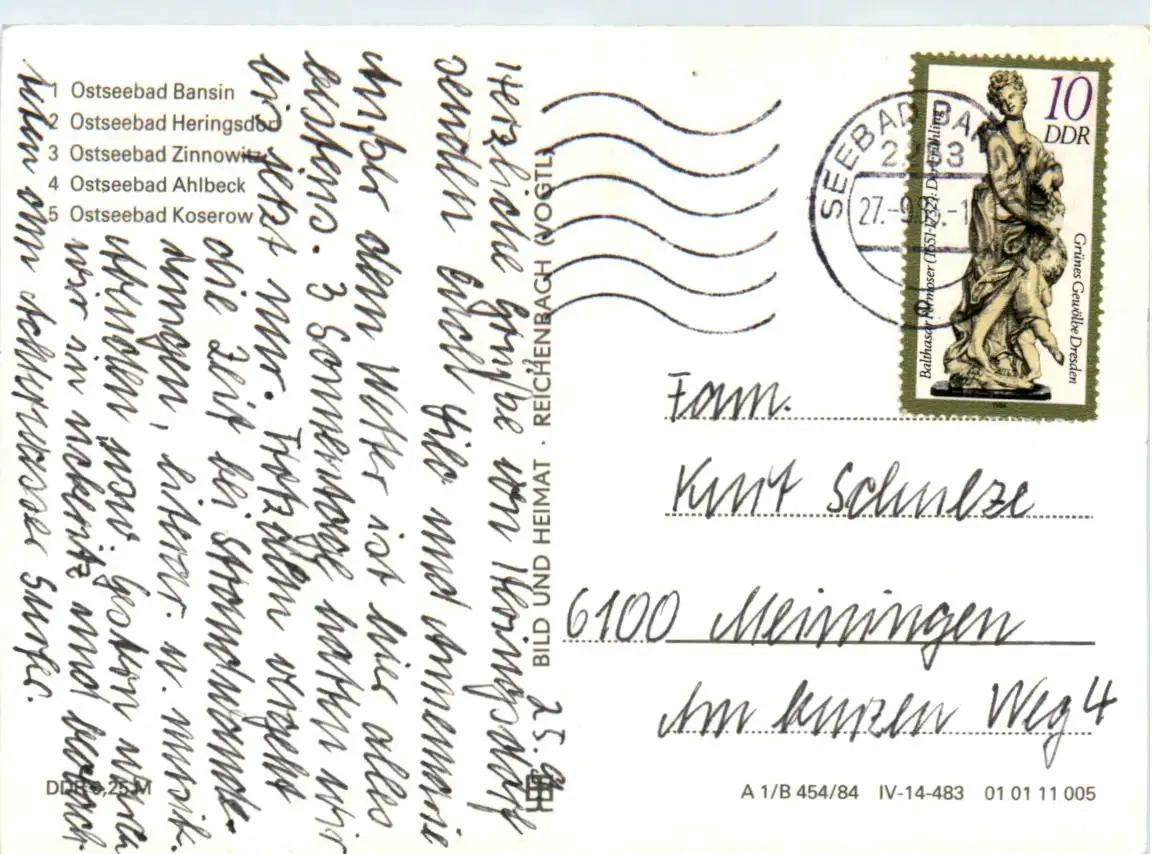 1 Ostseebad Bansin
2 Ostseebad Heringsdorf
3 Ostseebad Zinnowitz
4 Ostseebad Ahlbeck
5 Ostseebad Koserow
25.9.
Herzliche Grüße von Heringsdorf
senden Euch Hilo und Annemarie
Außer dem Wetter ist hier alles
bestens. 3 Sonnentage hatten wir
bis jetzt nur. Trotzdem vergeht
die Zeit bei Strandwande-
rungen, literar. u. musik.
Abenden usw. Gestern waren
wir in Ückeritz und beobach-
teten die
Surfer.
BILD UND HEIMAT · REICHENBACH (VOGTL)
SEEBAD BAN
2253
27.-9.85.-1
10
DDR
Balthasar Permoser (1651-1732): Der Frühling
Grünes Gewölbe Dresden
1984
Fam.
Kurt Schulze
6100 Meiningen
Am kurzen Weg 4
DDR 0,25 M
A 1/B 454/84 IV-14-483 01 01 11 005